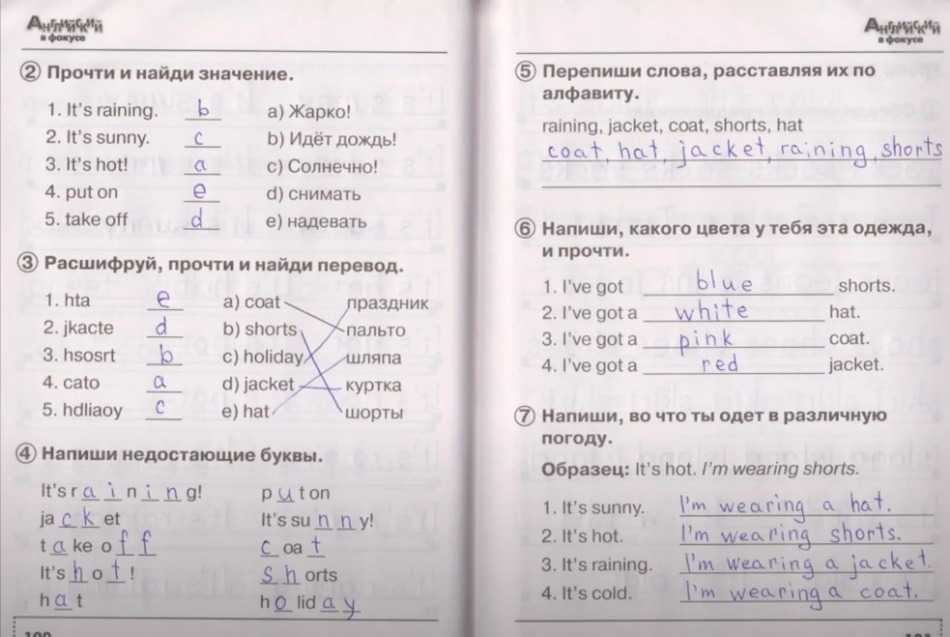 Английский
в фокусе
② Прочти и найди значение.
1. It's raining. b a) Жарко!
2. It's sunny. c b) Идёт дождь!
3. It's hot! a c) Солнечно!
4. put on e d) снимать
5. take off d e) надевать
③ Расшифруй, прочти и найди перевод.
1. hta e a) coat праздник
2. jkacte d b) shorts пальто
3. hsosrt b c) holiday шляпа
4. cato a d) jacket куртка
5. hdliaoy c e) hat шорты
④ Напиши недостающие буквы.
It's raining! put on
jacket It's sunny!
take off coat
It's hot! shorts
hat holiday
Английский
в фокусе
⑤ Перепиши слова, расставляя их по
алфавиту.
raining, jacket, coat, shorts, hat
coat, hat, jacket, raining, shorts
⑥ Напиши, какого цвета у тебя эта одежда,
и прочти.
1. I've got blue shorts.
2. I've got a white hat.
3. I've got a pink coat.
4. I've got a red jacket.
⑦ Напиши, во что ты одет в различную
погоду.
Образец: It's hot. I'm wearing shorts.
1. It's sunny. I'm wearing a hat.
2. It's hot. I'm wearing shorts.
3. It's raining. I'm wearing a jacket.
4. It's cold. I'm wearing a coat.